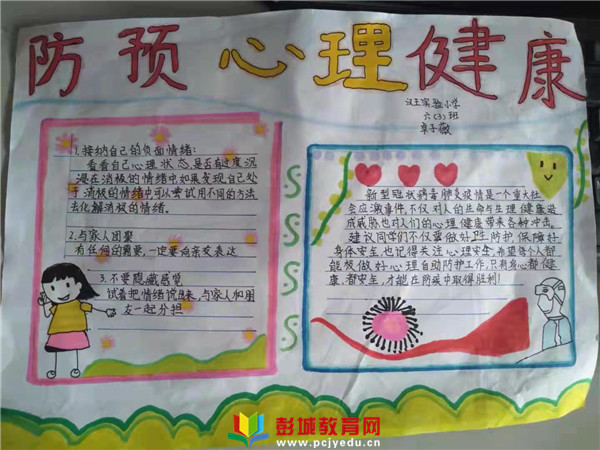 防预心理健康
汉王实验小学
六(3)班
卓子薇
1.接纳自己的负面情绪:
看看自己心理状态是否有过度沉
浸在消极的情绪中如果发现自己处
于消极的情绪中可以尝试用不同的方法
去化解消极的情绪。
2.与家人团聚
有任何的需要,一定要向亲友表达
3.不要隐藏感觉
试着把情绪说出来,与家人和朋
友一起分担
新型冠状病毒肺炎疫情是一个重大社
会应激事件,不仅对人的生命与生理健康造
成威胁也对人们的心理健康带来各种冲击。
建议同学们不仅要做好卫生防护,保障好
身体安全,也记得关注心理安全,希望每个人都
能发做好心理自助防护工作,只有身心都健
康、都安全,才能在防疫中取得胜利!
彭城教育网
www.pcjyedu.cn